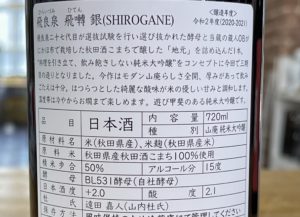 ひらいずみ ひてん
飛良泉 飛囀 銀(SHIROGANE)
〈醸造年度〉
令和2年度(2020-2021)
飛良泉二十七代目が選抜試験を行い選び抜かれた酵母と当蔵の蔵人OBが
にかほ市で栽培した秋田酒こまちで醸した「地元」を詰め込んだ1本。
“料理を引き立て、飲み飽きしない純米大吟醸”をコンセプトに今回で三回
の造りとなります。今作はモダン山廃らしさ全開、厚みがあって飲み
たえは十分、はつらつとした綺麗な酸味が米の優しい甘みと調和します。
温帯は冷やからお燗まで楽しめます。遊び甲斐のある純米大吟醸です。
品目 日本酒 内容量 720ml
種別 山廃 純米大吟醸
原材料名 米(秋田県産)、米麹(秋田県産米)
原料米 秋田県産秋田酒こまち100%使用
精米歩合 50% アルコール分 15度
酵母 BL531酵母(自社酵母)
日本酒度 +2.0 酸度 2.1
杜氏 遠田 嘉人(山内杜氏)